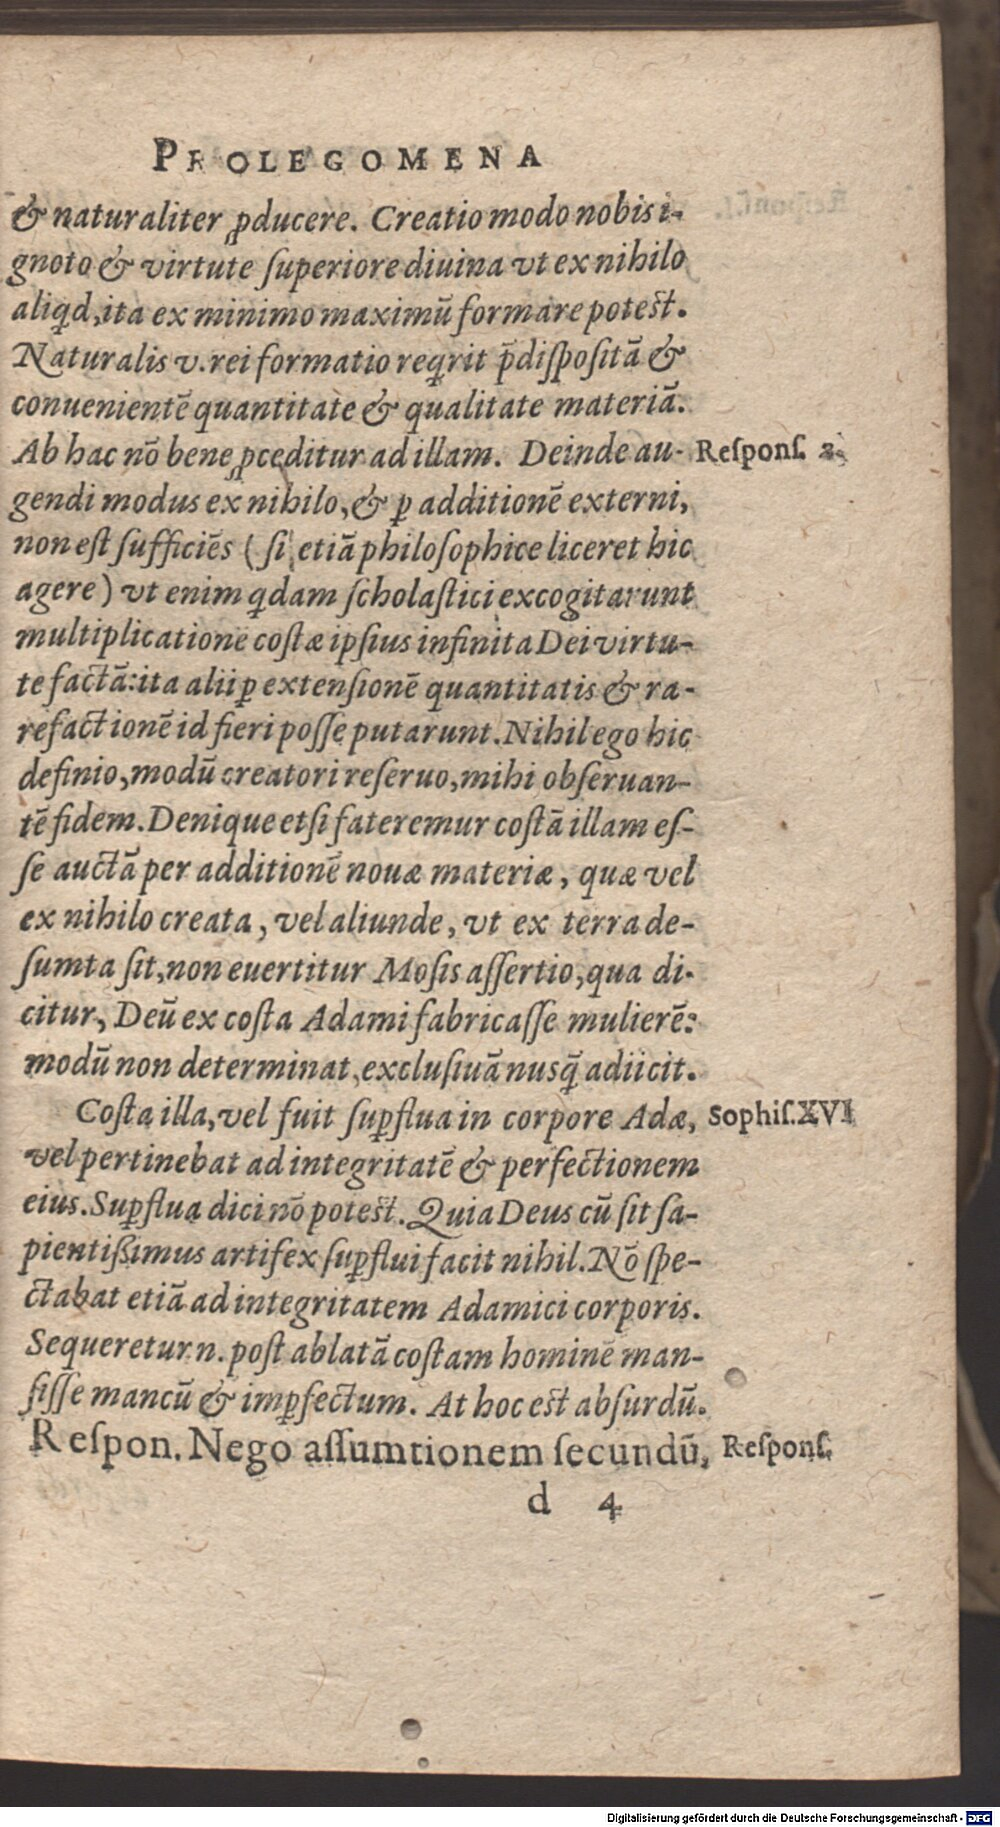 PROLEGOMENA
& naturaliter ꝓducere. Creatio modo nobis i-
gnoto & virtute ſuperiore diuina vt ex nihilo
aliqd, ita ex minimo maximũ formare poteſt.
Naturalis v. rei formatio reqrit p̃diſpoſitã &
conuenientẽ quantitate & qualitate materiã.
Ab hac nõ bene ꝓceditur ad illam. Deinde au- Reſponſ. 2.
gendi modus ex nihilo, & ꝑ additionẽ externi,
non eſt ſufficiẽs (ſi etiã philoſophice liceret hic
agere) vt enim qdam ſcholaſtici excogitarunt
multiplicationẽ coſtæ ipſius infinita Dei virtu-
te factã: ita alii ꝑ extenſionẽ quantitatis & ra-
refactionẽ id fieri poſſe putarunt. Nihil ego hic
definio, modũ creatori reſeruo, mihi obſeruan-
tẽ fidem. Denique etſi fateremur coſtã illam eſ-
ſe auctã per additionẽ nouæ materiæ, quæ vel
ex nihilo creata, vel aliunde, vt ex terra de-
ſumta ſit, non euertitur Moſis aſſertio, qua di-
citur, Deũ ex coſta Adami fabricaſſe mulierẽ:
modũ non determinat, excluſiuã nusq̃ adiicit.
Coſta illa, vel fuit ſuꝑflua in corpore Adæ, Sophiſ. XVI
vel pertinebat ad integritatẽ & perfectionem
eius. Suꝑflua dici nõ poteſt. Quia Deus cũ ſit ſa-
pientißimus artifex ſuꝑflui facit nihil. Nõ ſpe-
ctabat etiã ad integritatem Adamici corporis.
Sequeretur n. poſt ablatã coſtam hominẽ man-
ſiſſe mancũ & imꝑfectum. At hoc eſt abſurdũ.
Reſpon. Nego aſſumtionem ſecundũ, Reſponſ.
d 4
Digitalisierung gefördert durch die Deutsche Forschungsgemeinschaft - DFG